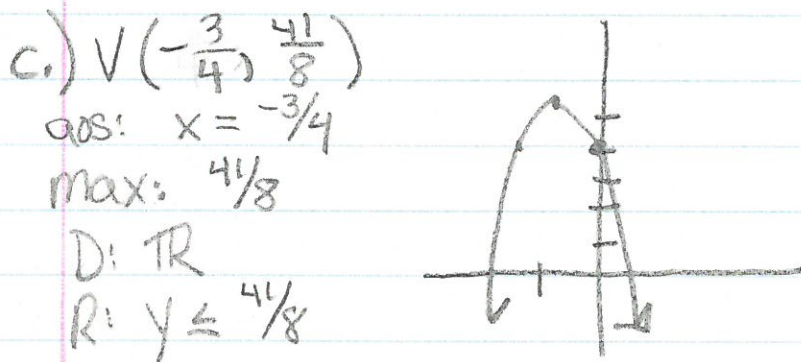 c.) V(-3/4, 41/8)
aos: x = -3/4
max: 41/8
D: ℝ
R: y ≤ 41/8